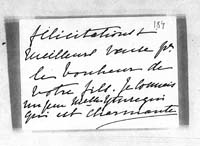 184
félicitations &
meilleurs vœux pr
le bonheur de
votre fils. Je connais
un peu Melle
qui est charmante